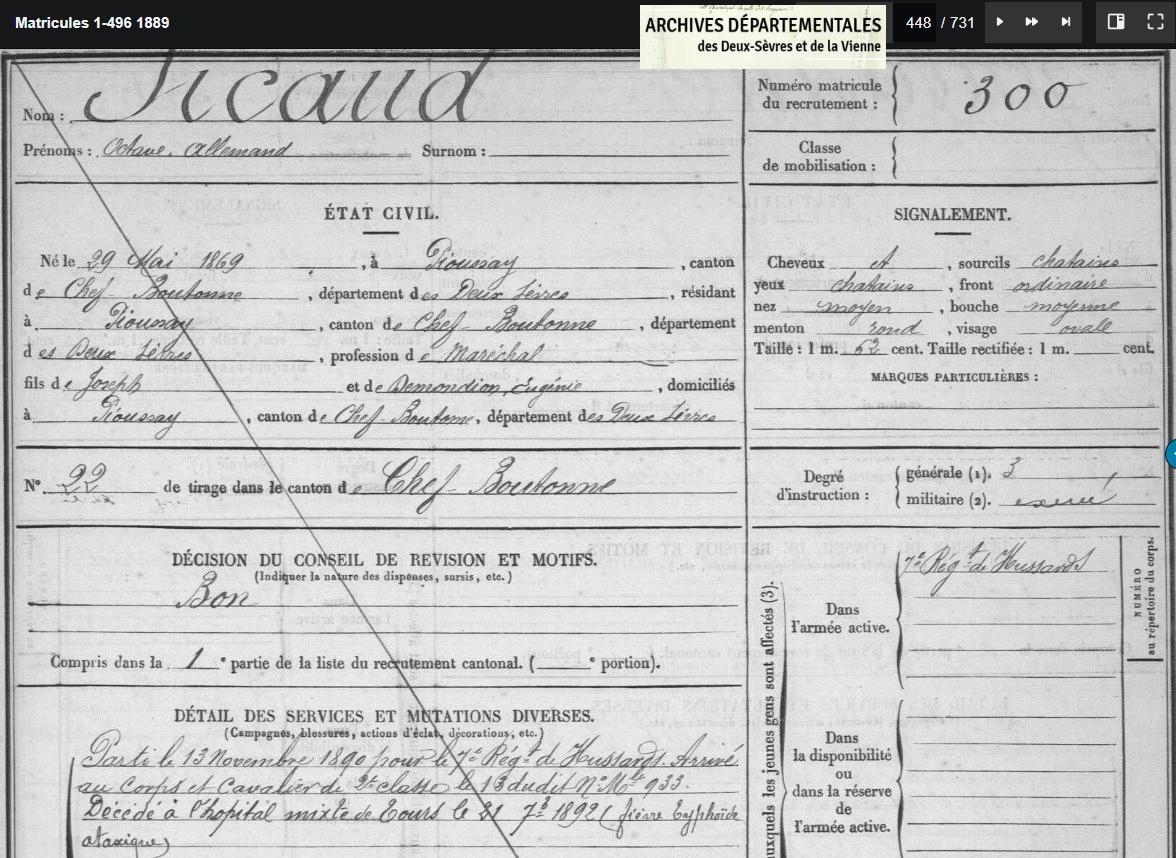 Matricules 1-496 1889
ARCHIVES DÉPARTEMENTALES
des Deux-Sèvres et de la Vienne
448 / 731
Nom : Sicaud
Prénoms : Octave. Allemand Surnom :
Numéro matricule
du recrutement : 300
Classe
de mobilisation :
ÉTAT CIVIL.
Né le 29 Mai 1869, à Pioussay, canton
de Chef-Boutonne, département des Deux Sèvres, résidant
à Pioussay, canton de Chef-Boutonne, département
des Deux Sèvres, profession de Maréchal
fils de Joseph et de Demondion, Eugénie, domiciliés
à Pioussay, canton de Chef-Boutonne, département des Deux Sèvres
SIGNALEMENT.
Cheveux et, sourcils chatains
yeux chatains, front ordinaire
nez moyen, bouche moyenne
menton rond, visage ovale
Taille : 1 m. 62 cent. Taille rectifiée : 1 m. cent.
MARQUES PARTICULIÈRES :
N° 22 de tirage dans le canton de Chef-Boutonne
Degré
d'instruction :
générale (1). 3
militaire (2). exercé
DÉCISION DU CONSEIL DE REVISION ET MOTIFS.
(Indiquer la nature des dispenses, sursis, etc.)
Bon
Compris dans la 1e partie de la liste du recrutement cantonal. (e portion).
DÉTAIL DES SERVICES ET MUTATIONS DIVERSES.
(Campagnes, blessures, actions d'éclat, décorations, etc.)
Parti le 13 Novembre 1890 pour le 7e Régt de Hussards. Arrivé
au Corps et Cavalier de 2e classe le 13 dudit N° Mle 933.
Décédé à l'hopital mixte de Tours le 21 7bre 1892 (fièvre typhoïde
ataxique)
auxquels les jeunes gens sont affectés (3).
7e Régt de Hussards
Dans
l'armée active.
Dans
la disponibilité
ou
dans la réserve
de
l'armée active.
NUMÉRO
au répertoire du corps.